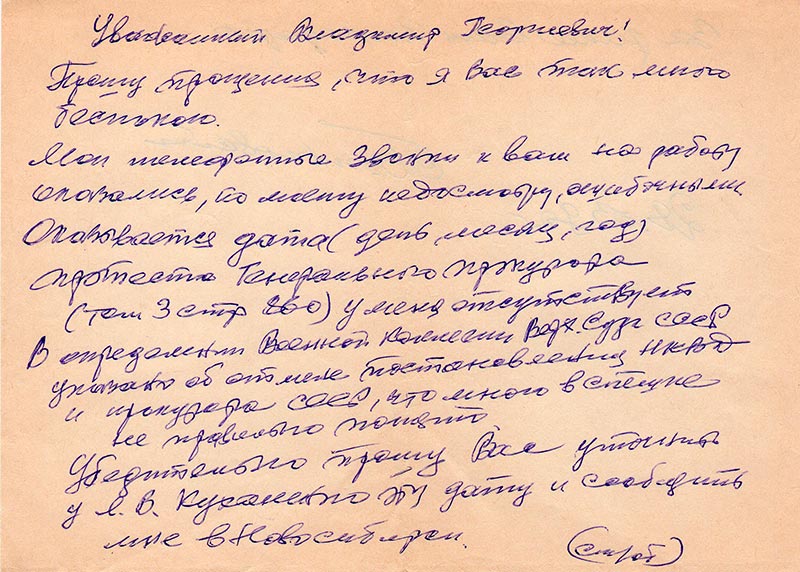 Уважаемый Владимир Георгиевич!
Прошу прощения, что я Вас так много
беспокою.
Мои телефонные звонки к вам на работу
оказались, по моему недосмотру, ошибочными.
Оказывается дата (день, месяц, год)
протеста Генерального прокурора
(том 3 стр 260) у меня отсутствует
В определении Военной Коллегии Верх. Суда СССР
указано об отмене постановления НКВД
и прокурора СССР, что много в спешке
не правильно понято
Убедительно прошу Вас уточнить
у Л. В. эту дату и сообщить
мне в Новосибирск.